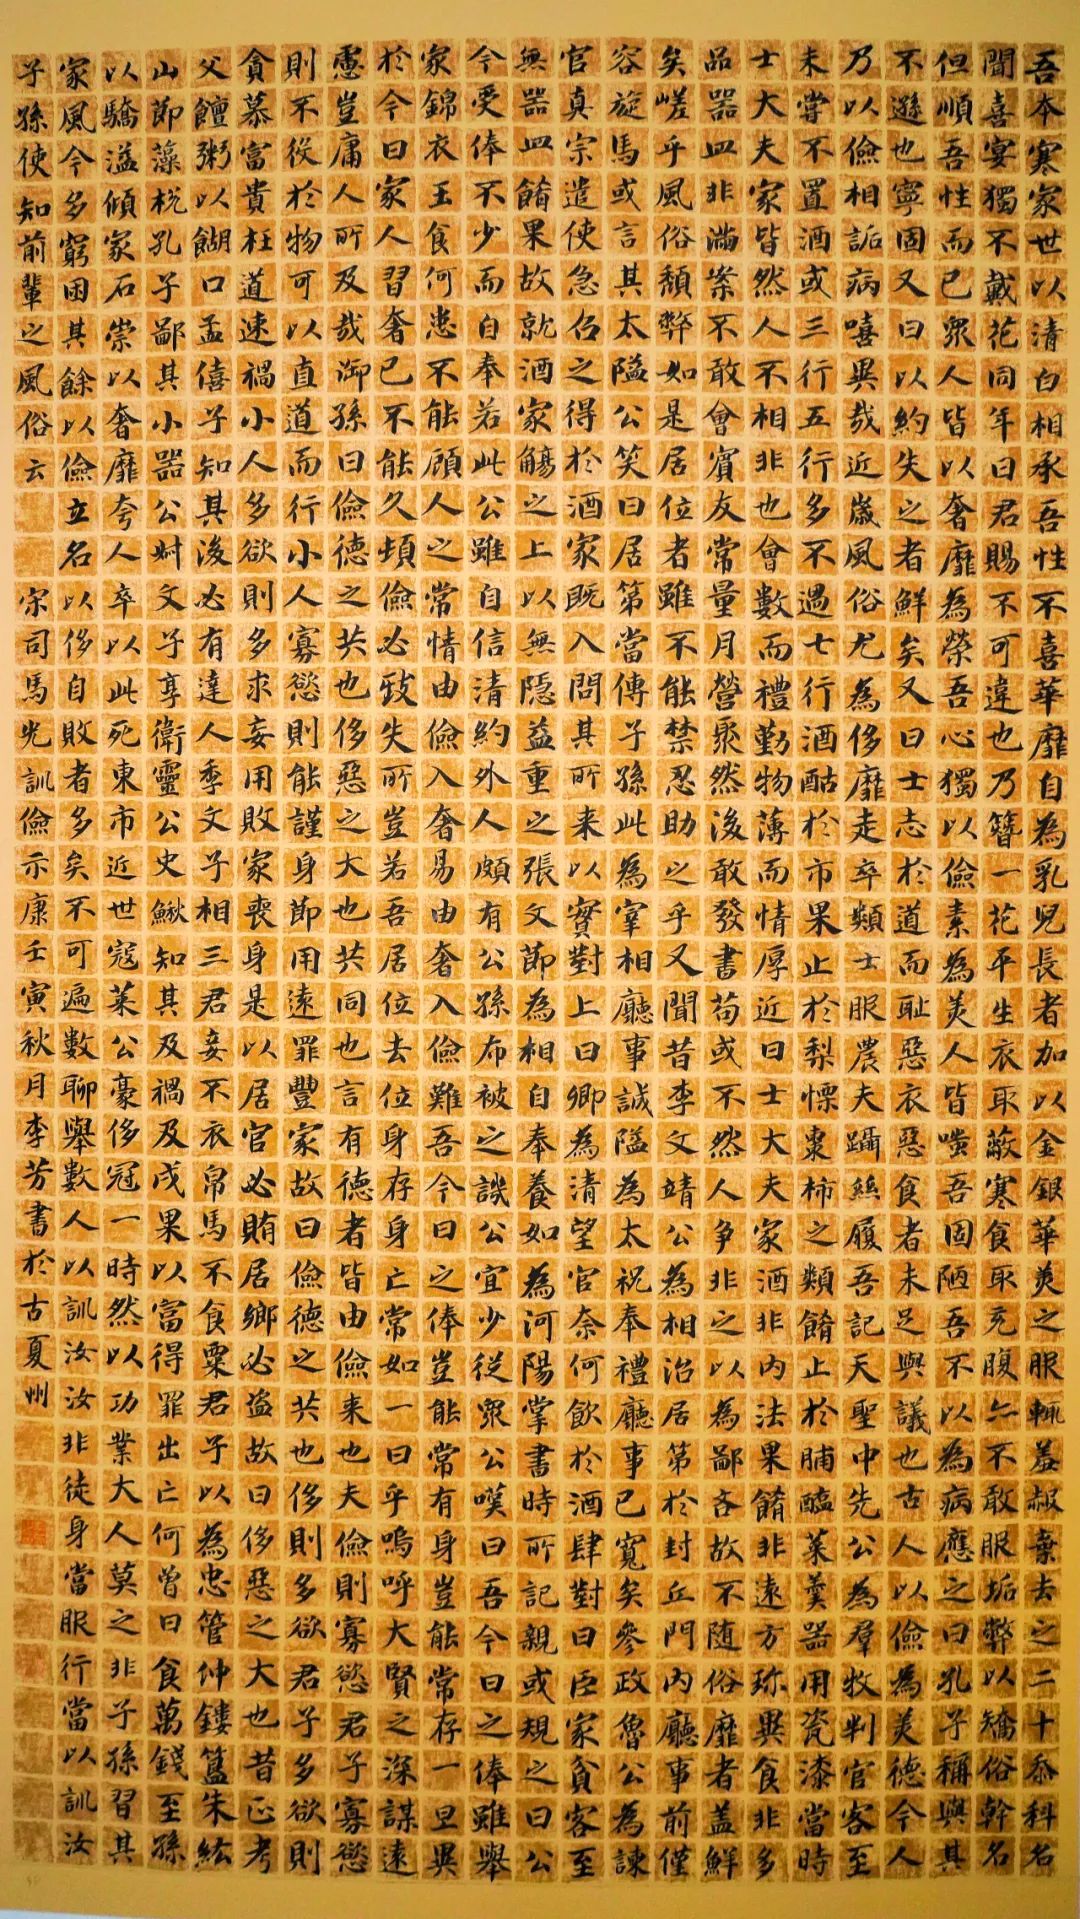 吾本寒家世以清白相承吾性不喜華靡自為乳兒長者加以金銀華美之服輒羞赧棄去之二十忝科名
聞喜宴獨不戴花同年曰君賜不可違也乃簪一花平生衣取蔽寒食取充腹亦不敢服垢弊以矯俗幹名
但順吾性而已眾人皆以奢靡為榮吾心獨以儉素為美人皆嗤吾固陋吾不以為病應之曰孔子稱與其
不遜也寧固又曰以約失之者鮮矣又曰士志於道而恥惡衣惡食者未足與議也古人以儉為美德今人
乃以儉相詬病嘻異哉近歲風俗尤為侈靡走卒類士服農夫躡絲履吾記天聖中先公為群牧判官客至
未嘗不置酒或三行五行多不過七行酒酤於市果止於梨慄棗柿之類餚止於脯醢菜羹器用瓷漆當時
士大夫家皆然人不相非也會數而禮勤物薄而情厚近日士大夫家酒非內法果餚非遠方珍異食非多
品器皿非滿案不敢會賓友常量月營聚然後敢發書苟或不然人爭非之以為鄙吝故不随俗靡者蓋鮮
矣嗟乎風俗頹弊如是居位者雖不能禁忍助之乎又聞昔李文靖公為相治居第於封丘門內廳事前僅
容旋馬或言其太隘公笑曰居第當傳子孫此為宰相廳事誠隘為太祝奉禮廳事已寬矣參政魯公為諫
官真宗遣使急召之得於酒家既入問其所来以實對上曰卿為清望官奈何飲於酒肆對曰臣家貧客至
無器皿餚果故就酒家觴之上以無隱益重之張文節為相自奉養如為河陽掌書時所記親或規之曰公
今受俸不少而自奉若此公雖自信清約外人頗有公孫布被之譏公宜少從眾公嘆曰吾今日之俸雖舉
家錦衣玉食何患不能顧人之常情由儉入奢易由奢入儉難吾今日之俸豈能常有身豈能常存一旦異
於今日家人習奢已不能久頓儉必致失所豈若吾居位去位身存身亡常如一日乎嗚呼大賢之深謀遠
慮豈庸人所及哉御孫曰儉德之共也侈惡之大也共同也言有德者皆由儉来也夫儉則寡慾君子寡慾
則不役於物可以直道而行小人寡慾則能謹身節用遠罪豐家故曰儉德之共也侈則多欲君子多欲則
貪慕富貴枉道速禍小人多欲則多求妄用敗家喪身是以居官必賄居鄉必盜故曰侈惡之大也昔正考
父饘粥以餬口孟僖子知其後必有達人季文子相三君妾不衣帛馬不食粟君子以為忠管仲鏤簋朱紘
山節藻梲孔子鄙其小器公叔文子享衛靈公史鰌知其及禍及戌果以富得罪出亡何曾日食萬錢至孫
以驕溢傾家石崇以奢靡夸人卒以此死東市近世寇萊公豪侈冠一時然以功業大人莫之非子孫習其
家風今多窮困其餘以儉立名以侈自敗者多矣不可遍數聊舉數人以訓汝汝非徒身當服行當以訓汝
子孫使知前輩之風俗云 宋司馬光訓儉示康壬寅秋月李芳書於古夏州